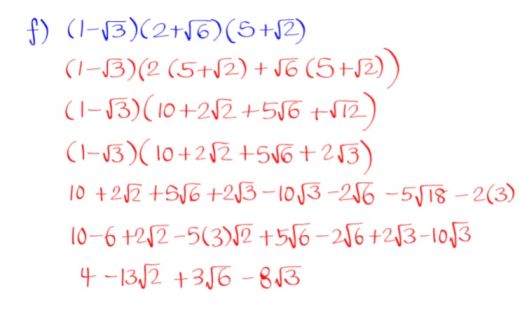 f) (1-√3)(2+√6)(5+√2)
(1-√3)(2(5+√2) + √6(5+√2))
(1-√3)(10+2√2+5√6+√12)
(1-√3)(10+2√2+5√6+2√3)
10+2√2+5√6+2√3-10√3-2√6-5√18-2(3)
10-6+2√2-5(3)√2+5√6-2√6+2√3-10√3
4-13√2+3√6-8√3